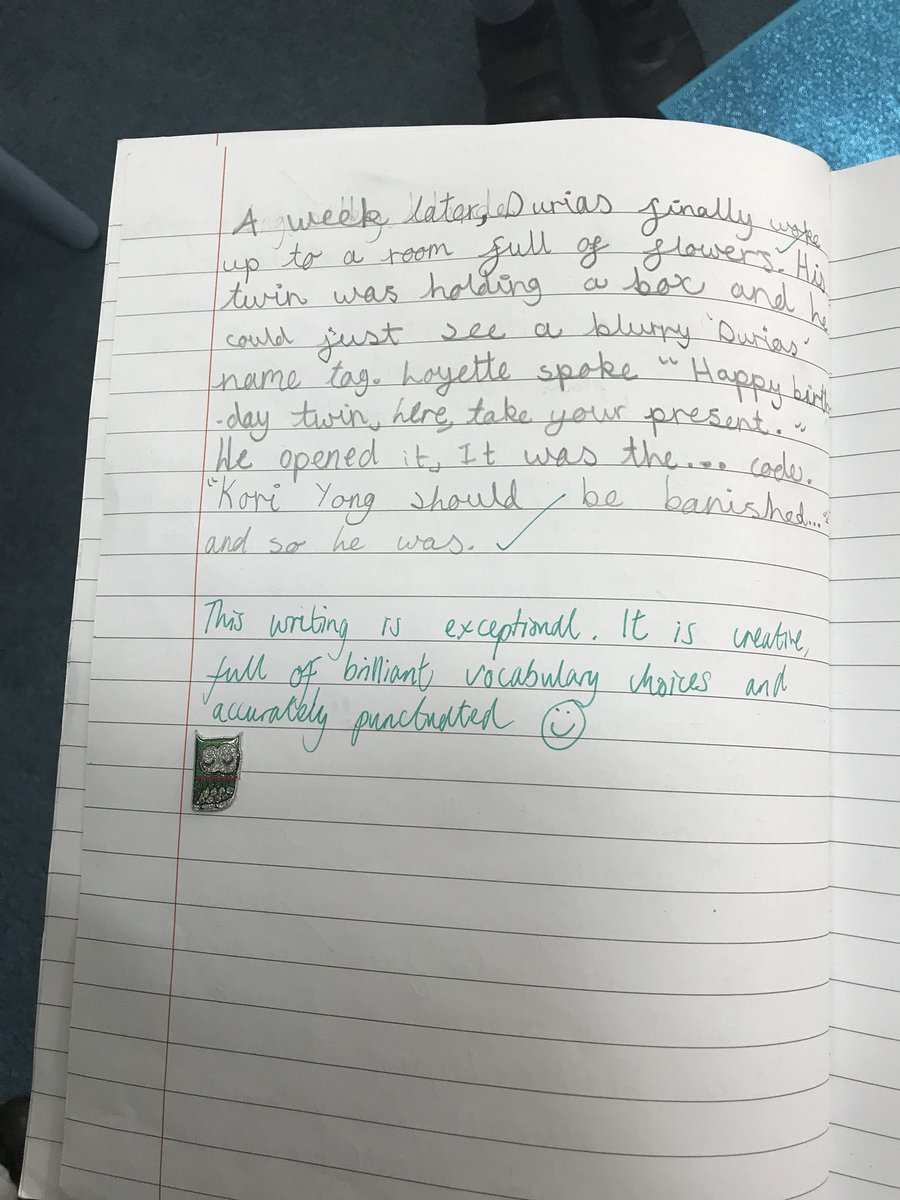 A week later, Durias finally woke
up to a room full of flowers. His
twin was holding a box and he
could just see a blurry 'Durias'
name tag. Loyette spoke "Happy birth
-day twin, here, take your present."
He opened it, It was the... code.
"Kori Yong should be banished..."
and so he was.
This writing is exceptional. It is creative,
full of brilliant vocabulary choices and
accurately punctuated